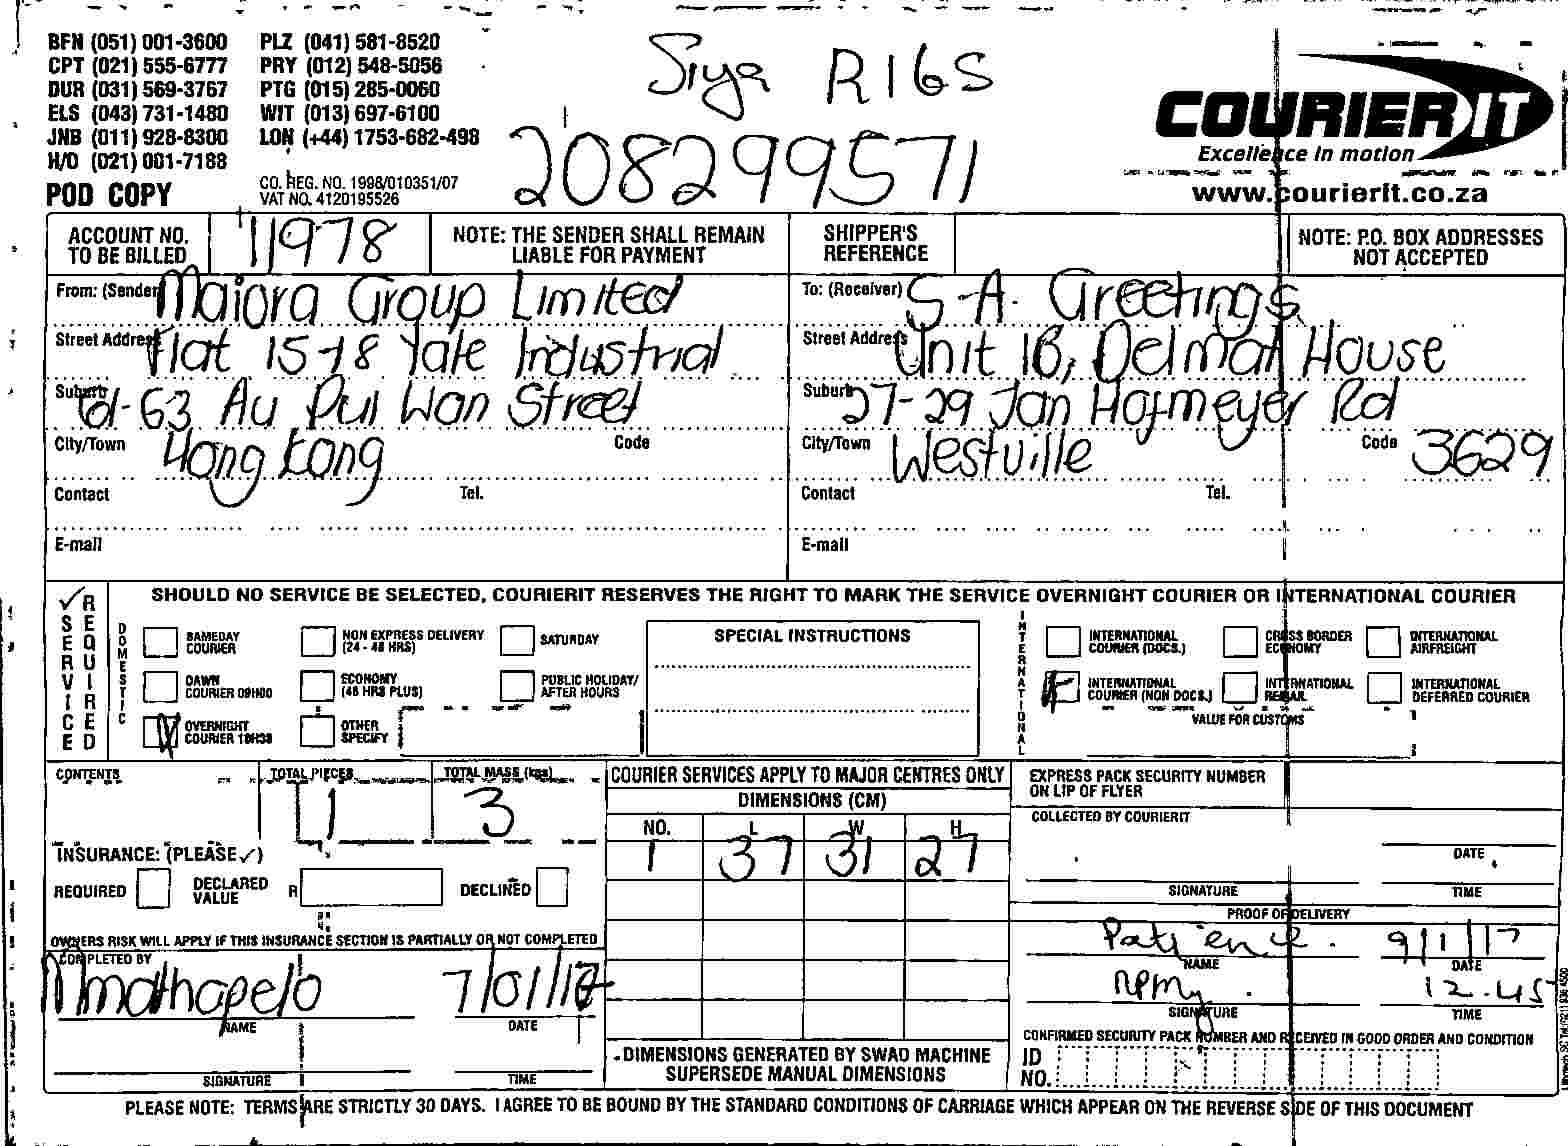 BFN (051) 001-3600 PLZ (041) 581-8520
CPT (021) 555-6777 PRY (012) 548-5056
DUR (031) 569-3767 PTG (015) 285-0060
ELS (043) 731-1480 WIT (013) 697-6100
JNB (011) 928-8300 LON (+44) 1753-682-498
H/O (021) 001-7188
POD COPY
CO. REG. NO. 1998/010351/07
VAT NO. 4120195526
Siya R16S
208299571
COURIER IT
Excellence in motion
www.courierit.co.za
ACCOUNT NO. TO BE BILLED 11978
NOTE: THE SENDER SHALL REMAIN LIABLE FOR PAYMENT
SHIPPER'S REFERENCE
NOTE: P.O. BOX ADDRESSES NOT ACCEPTED
From: (Sender) Maiora Group Limited
Street Address Flat 15-18 Yale Industrial
Suburb 61-63 Au Pui Wan Street
City/Town Hong Kong Code
Contact Tel.
E-mail
To: (Receiver) S.A. Greetings
Street Address Unit 1B, Delmat House
Suburb 27-29 Jan Hofmeyer Rd
City/Town Westville Code 3629
Contact Tel.
E-mail
SERVICE REQUIRED
SHOULD NO SERVICE BE SELECTED, COURIERIT RESERVES THE RIGHT TO MARK THE SERVICE OVERNIGHT COURIER OR INTERNATIONAL COURIER
DOMESTIC
SAMEDAY COURIER
NON EXPRESS DELIVERY (24 - 48 HRS)
SATURDAY
DAWN COURIER 09H00
ECONOMY (48 HRS PLUS)
PUBLIC HOLIDAY/ AFTER HOURS
OVERNIGHT COURIER 10H30
OTHER SPECIFY
SPECIAL INSTRUCTIONS
INTERNATIONAL
INTERNATIONAL COURIER (DOCS.)
CROSS BORDER ECONOMY
INTERNATIONAL AIRFREIGHT
INTERNATIONAL COURIER (NON DOCS.)
INTERNATIONAL REMAIL
INTERNATIONAL DEFERRED COURIER
VALUE FOR CUSTOMS
CONTENTS
TOTAL PIECES 1
TOTAL MASS (kgs) 3
INSURANCE: (PLEASE ✓)
REQUIRED DECLARED VALUE R DECLINED
OWNERS RISK WILL APPLY IF THIS INSURANCE SECTION IS PARTIALLY OR NOT COMPLETED
COMPLETED BY
Mmathapelo 7/01/17
NAME DATE
SIGNATURE TIME
COURIER SERVICES APPLY TO MAJOR CENTRES ONLY
DIMENSIONS (CM)
NO. L W H
1 37 31 27
DIMENSIONS GENERATED BY SWAD MACHINE SUPERSEDE MANUAL DIMENSIONS
EXPRESS PACK SECURITY NUMBER ON LIP OF FLYER
COLLECTED BY COURIERIT
DATE
SIGNATURE TIME
PROOF OF DELIVERY
Patience. 9/1/17
NAME DATE
12.45
SIGNATURE TIME
CONFIRMED SECURITY PACK NUMBER AND RECEIVED IN GOOD ORDER AND CONDITION
ID NO.
PLEASE NOTE: TERMS ARE STRICTLY 30 DAYS. I AGREE TO BE BOUND BY THE STANDARD CONDITIONS OF CARRIAGE WHICH APPEAR ON THE REVERSE SIDE OF THIS DOCUMENT